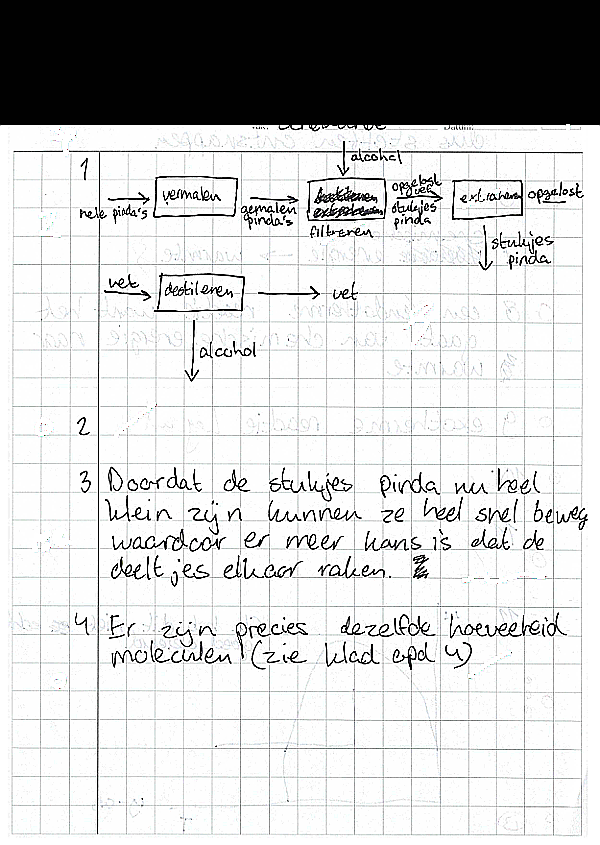 Datum:
1
alcohol
hele pinda's
vermalen
gemalen pinda's
filtreren
opgelost vet
stukjes pinda
extraheren
opgelost
stukjes pinda
vet
destileren
vet
alcohol
2
3 Doordat de stukjes pinda nu heel
klein zijn kunnen ze heel snel beweg
waardoor er meer kans is dat de
deeltjes elkaar raken.
4 Er zijn precies dezelfde hoeveelheid
moleculen (zie klad opd 4)